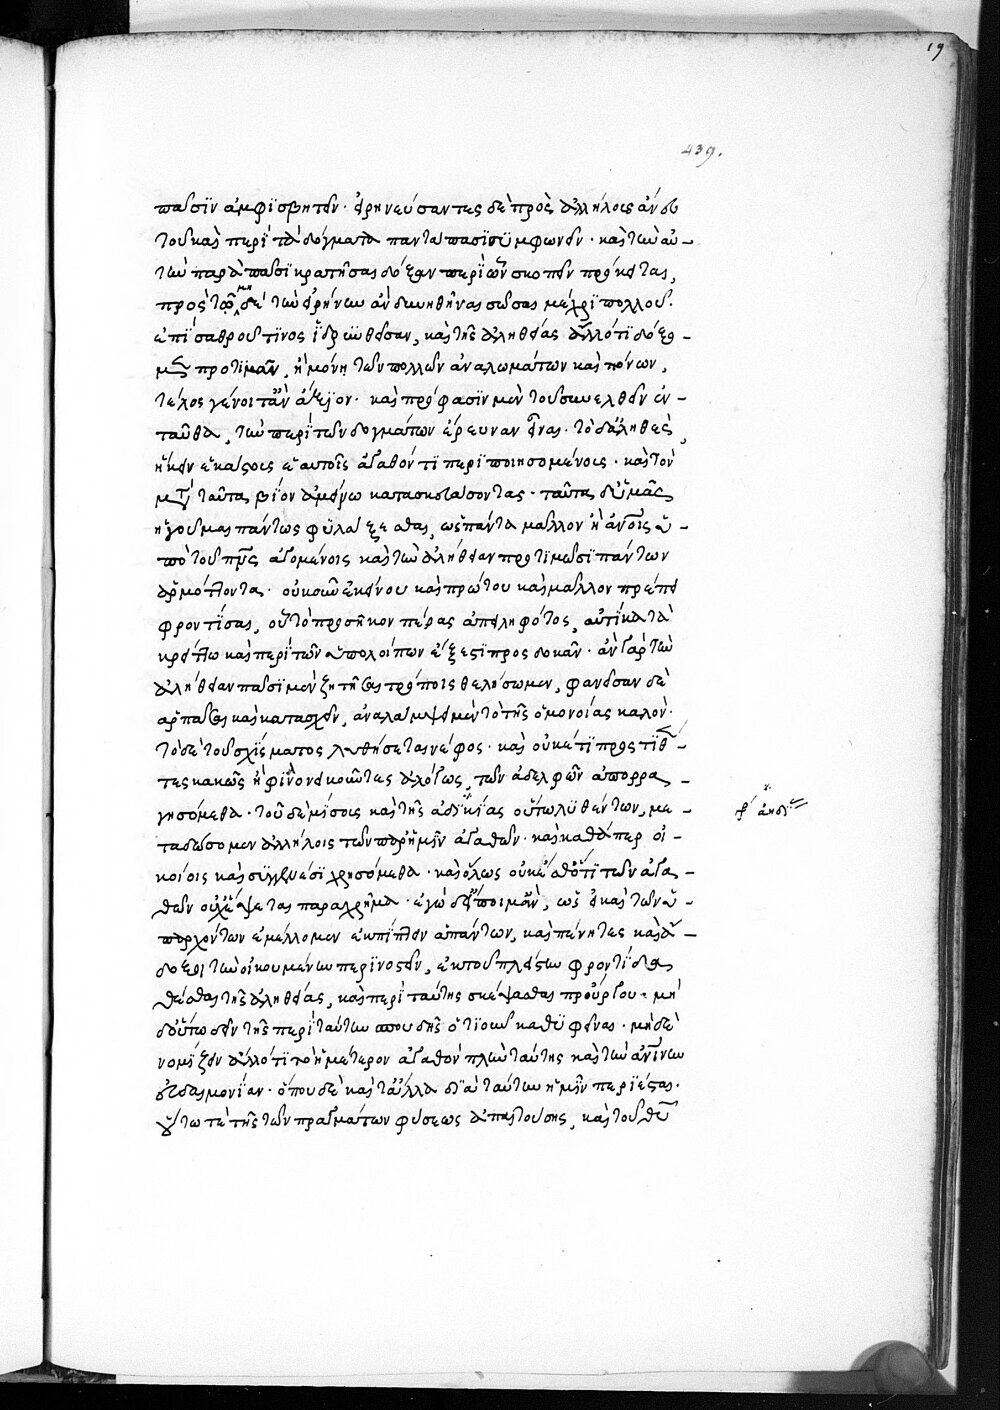 19
439.
πᾶσιν ἀμφισβητεῖν· εἰρηνεύσαντες δὲ πρὸς ἀλλήλους ἀν
τοὺς καὶ περὶ τὰ δόγματα πανταπασι συμφωνεῖν· καὶ τὴν αὐ-
τὴν παρὰ πᾶσι κρατῆσαι δόξαν περὶ ὧν σκοπεῖν πρόκειται,
πρὸς τῷ μὴ δὲ τὴν εἰρήνην ἂν δυνηθῆναι σῶσαι μέχρι πολλοῦ
ἐπὶ σαθροῦ τινος ἱδρυθεῖσαν, καὶ τῆς ἀληθείας ἄλλό τι δόξο-
μεν προτιμᾶν, ἣ μόνη τῶν πολλῶν ἀναλωμάτων καὶ πόνων,
τέλος γένοιτ' ἂν ἄξιον· καὶ πρόφασιν μὲν τοῦ συνελθεῖν ἐν-
ταῦθα, τὴν περὶ τῶν δογμάτων ἔρευναν εἶναι· τὸ δ' ἀληθὲς,
ἥκειν ἑκάστους ἑαυτοῖς ἀγαθόν τι περιποιησομένους· καὶ τὸν
μετὰ ταῦτα βίον ἀμείνω κατασκευάσοντας· ταῦτα δ' ὑμᾶς
ἡγοῦμαι πάντως φυλάξεσθαι, ὡς πάντα μᾶλλον ἢ ἀνθρώποις ὑ-
πὸ τοῦ πνεύματος ἀγομένοις καὶ τὴν ἀλήθειαν προτιμῶσι πάντων
ἁρμόττοντα· οὐκοῦν ἐκείνου καὶ πρώτου καὶ μᾶλλον πρέπει
φροντίσαι, οὗ τὸ προσῆκον πέρας ἀπειληφότος, αὐτίκα τὰ
κρείττω καὶ περὶ τῶν ὑπολοίπων ἔξεστι προσδοκᾶν· ἂν γὰρ τὴν
ἀλήθειαν πᾶσι μὲν ζητῆσαι τρόποις θελήσωμεν, φανεῖσαν δὲ
ἁρπάσαι καὶ κατασχεῖν, ἀναλάμψει μὲν τὸ τῆς ὁμονοίας καλόν·
τὸ δὲ τοῦ σχίσματος λυθήσεται νέφος· καὶ οὐκέτι προστιθέν-
τες κακῶς ἢ φιλονεικοῦντες ἀλόγως, τῶν ἀδελφῶν ἀπορρα-
γησόμεθα· τοῦ δὲ μίσους καὶ τῆς ἀδικίας οὕτω λυθέντων, με-
ταδώσομεν ἀλλήλοις τῶν παρ' ἡμῖν ἀγαθῶν· καὶ καθάπερ οἰ-
κείοις καὶ συγγενέσι χρησόμεθα· καὶ ὅλως οὐκ ἔσθ' ὅ τι τῶν ἀγα-
θῶν οὐχ ἕψεται παραχρῆμα· ἐγὼ δ' εἴποιμ' ἂν, ὡς εἰ καὶ τῶν ὑ-
παρχόντων ἐμέλλομεν ἐκπίπτειν ἁπάντων, καὶ πένητες καὶ ἄ-
δοξοι τὴν οἰκουμένην περινοστεῖν, ἐκ τοῦ πλείστην φροντίδα
θέσθαι τῆς ἀληθείας, καὶ περὶ ταύτης σκέψασθαι προὔργου· μὴ
δ' οὕτω δεῖν τῆς περὶ ταύτην σπουδῆς ὁτιοῦν καθυφεῖναι· μηδὲ
νομίζειν ἄλλό τι τὸ ἡμέτερον ἀγαθὸν πλὴν ταύτης καὶ τὴν ἀντὶ
εὐδαιμονίαν· ὅπου δὲ καὶ τἆλλα διὰ ταύτην ἡμῖν περιέσται·
οὕτω τε τῆς τῶν πραγμάτων φύσεως ἀπαιτούσης, καὶ τοῦ θεοῦ